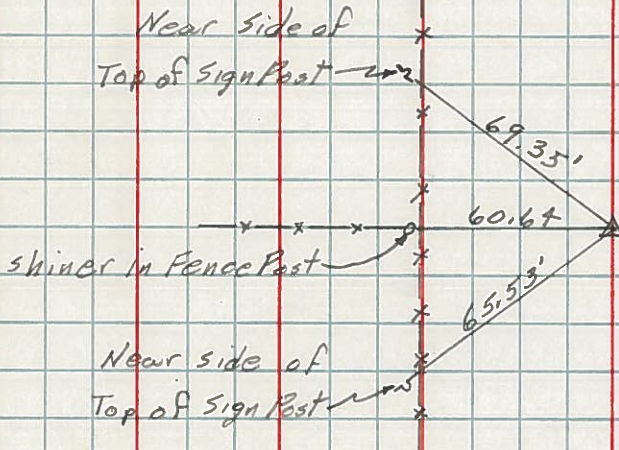 Near side of
Top of Sign Post
69.35'
60.64
shiner in Fence Post
65.53'
Near side of
Top of Sign Post